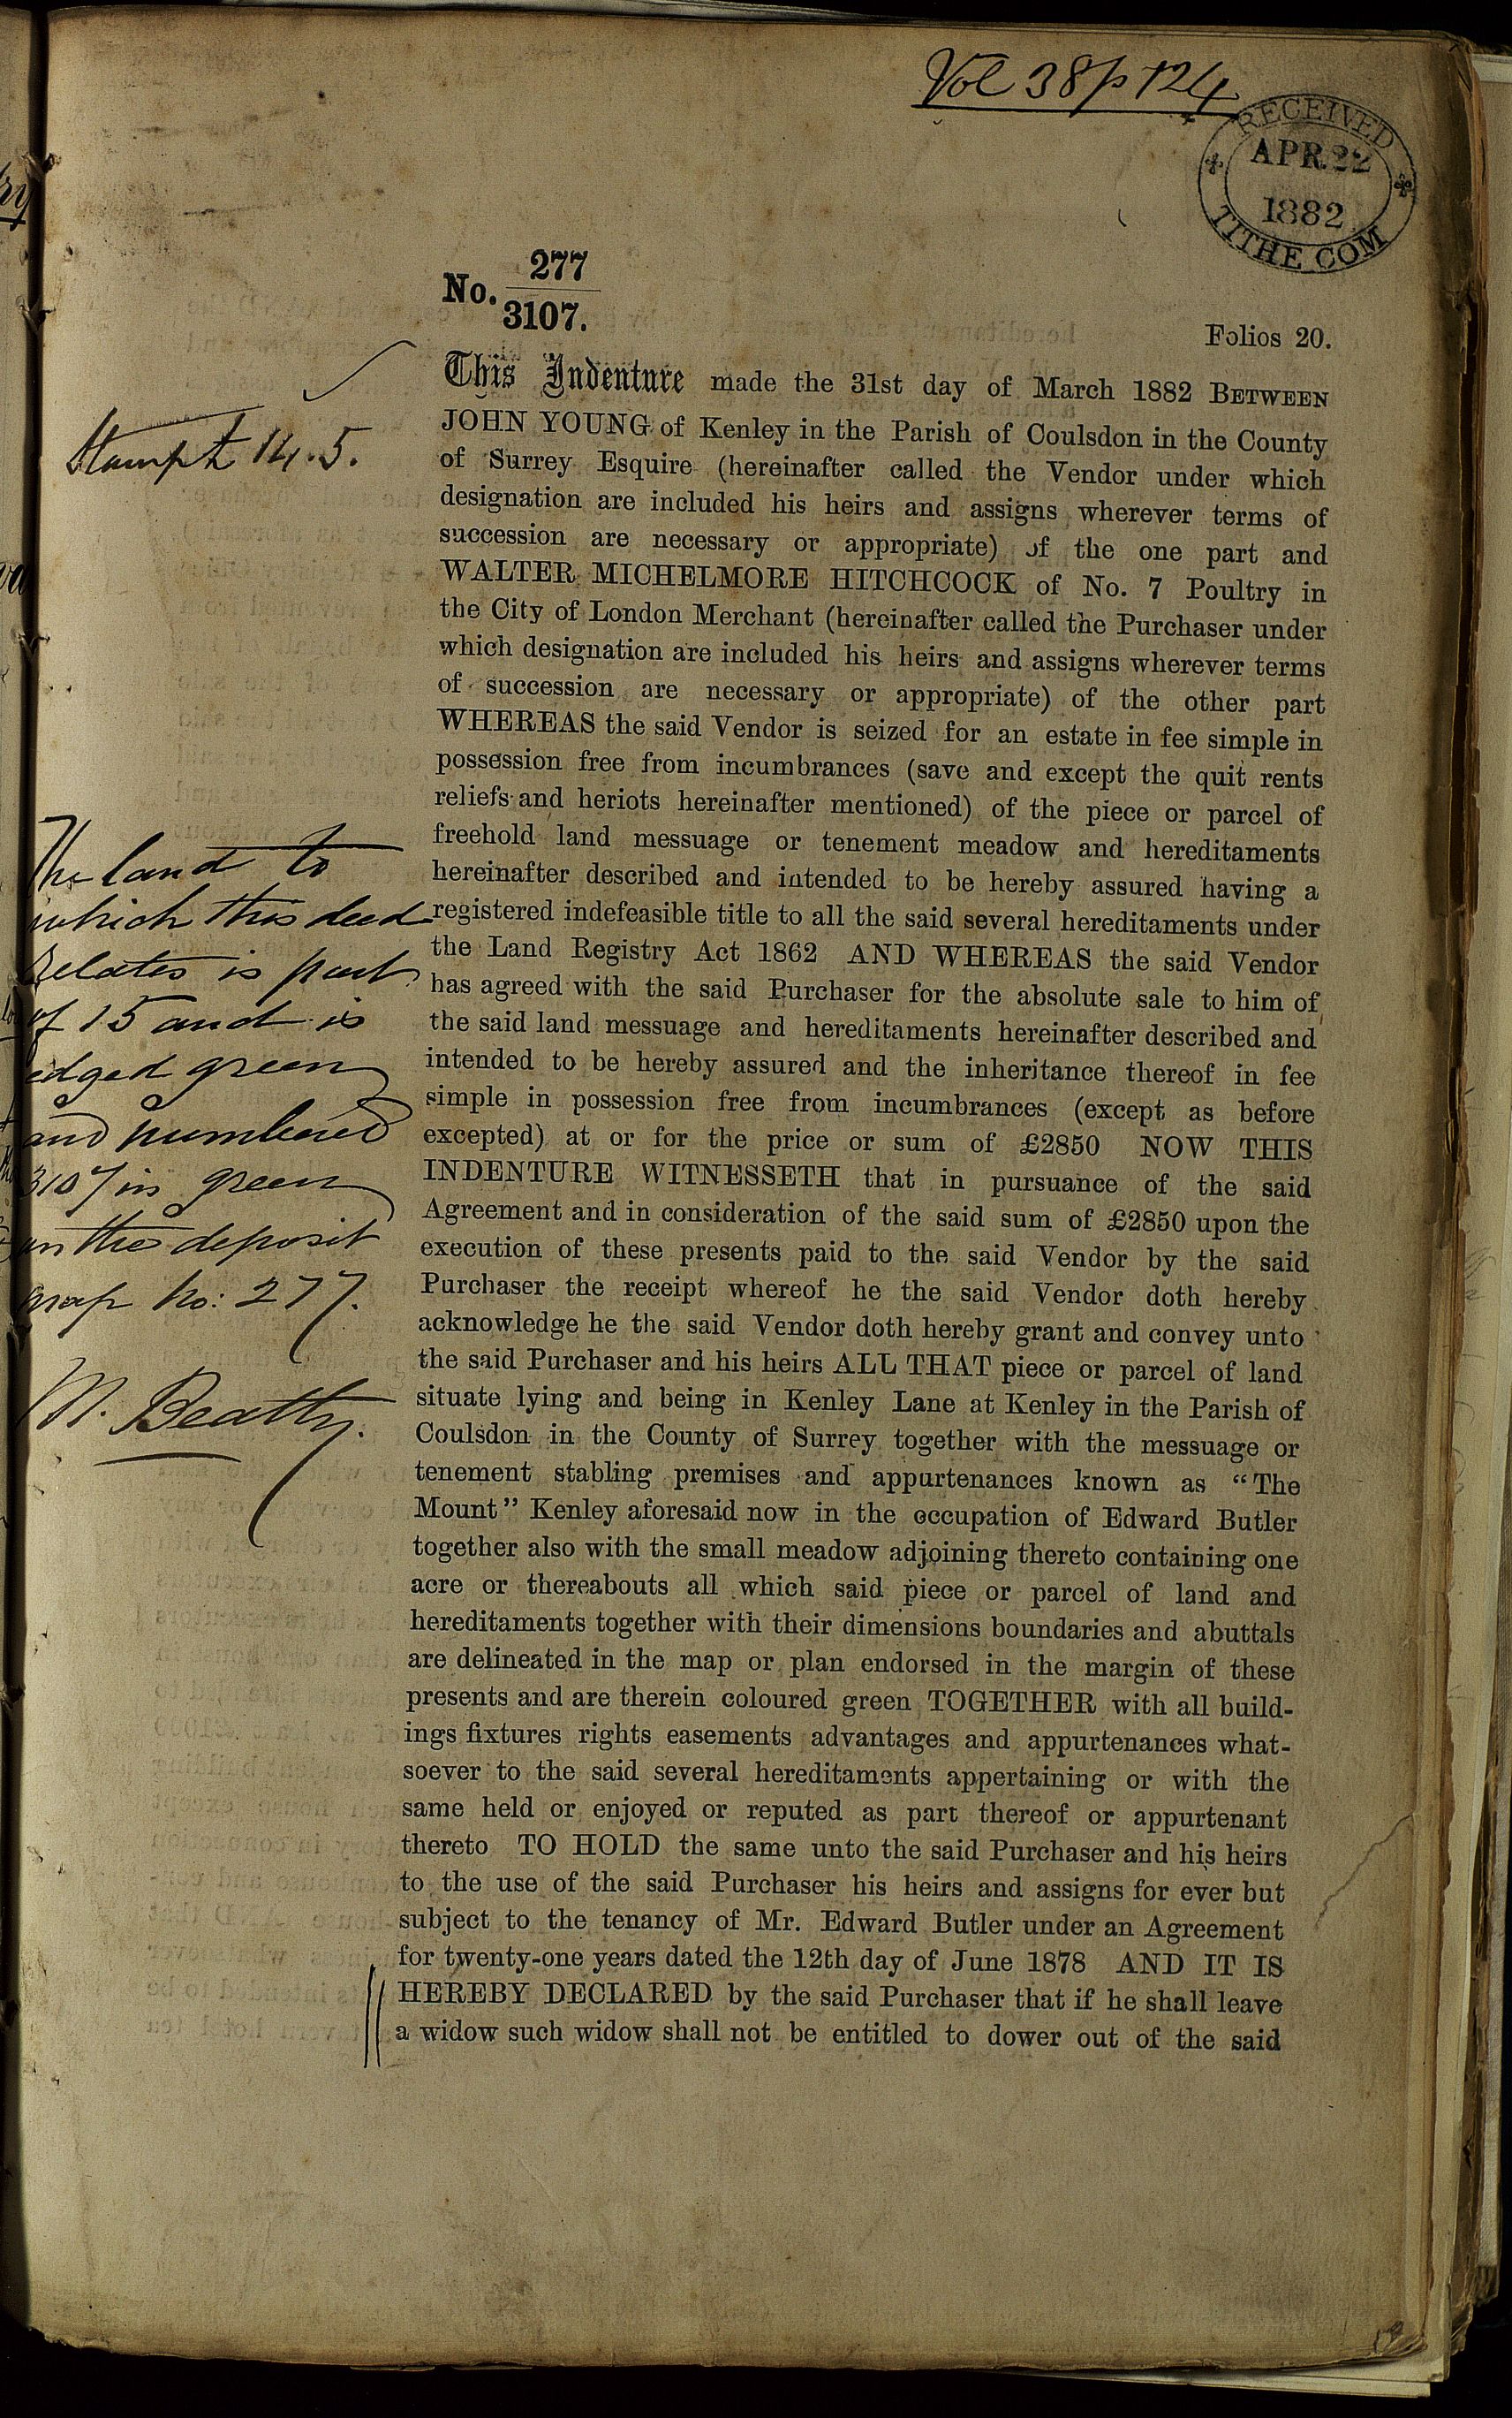 Vol 38 p 124
RECEIVED
APR. 22
1882
TITHE COM
No. 277
3107.
Folios 20.
This Indenture made the 31st day of March 1882 BETWEEN
JOHN YOUNG of Kenley in the Parish of Coulsdon in the County
of Surrey Esquire (hereinafter called the Vendor under which
designation are included his heirs and assigns wherever terms of
succession are necessary or appropriate) of the one part and
WALTER MICHELMORE HITCHCOCK of No. 7 Poultry in
the City of London Merchant (hereinafter called the Purchaser under
which designation are included his heirs and assigns wherever terms
of succession are necessary or appropriate) of the other part
WHEREAS the said Vendor is seized for an estate in fee simple in
possession free from incumbrances (save and except the quit rents
reliefs and heriots hereinafter mentioned) of the piece or parcel of
freehold land messuage or tenement meadow and hereditaments
hereinafter described and intended to be hereby assured having a
registered indefeasible title to all the said several hereditaments under
the Land Registry Act 1862 AND WHEREAS the said Vendor
has agreed with the said Purchaser for the absolute sale to him of
the said land messuage and hereditaments hereinafter described and
intended to be hereby assured and the inheritance thereof in fee
simple in possession free from incumbrances (except as before
excepted) at or for the price or sum of £2850 NOW THIS
INDENTURE WITNESSETH that in pursuance of the said
Agreement and in consideration of the said sum of £2850 upon the
execution of these presents paid to the said Vendor by the said
Purchaser the receipt whereof he the said Vendor doth hereby
acknowledge he the said Vendor doth hereby grant and convey unto
the said Purchaser and his heirs ALL THAT piece or parcel of land
situate lying and being in Kenley Lane at Kenley in the Parish of
Coulsdon in the County of Surrey together with the messuage or
tenement stabling premises and appurtenances known as “The
Mount” Kenley aforesaid now in the occupation of Edward Butler
together also with the small meadow adjoining thereto containing one
acre or thereabouts all which said piece or parcel of land and
hereditaments together with their dimensions boundaries and abuttals
are delineated in the map or plan endorsed in the margin of these
presents and are therein coloured green TOGETHER with all build-
ings fixtures rights easements advantages and appurtenances what-
soever to the said several hereditaments appertaining or with the
same held or enjoyed or reputed as part thereof or appurtenant
thereto TO HOLD the same unto the said Purchaser and his heirs
to the use of the said Purchaser his heirs and assigns for ever but
subject to the tenancy of Mr. Edward Butler under an Agreement
for twenty-one years dated the 12th day of June 1878 AND IT IS
HEREBY DECLARED by the said Purchaser that if he shall leave
a widow such widow shall not be entitled to dower out of the said
14.5.
The land to
which this deed
relates is part
of 15 and is
edged green
and numbered
3107 in green
on the deposit
map No: 277.
M. Beatty.